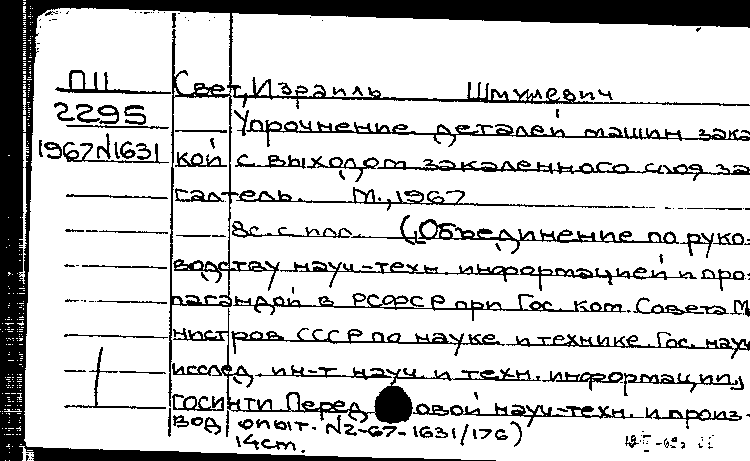 П11 Свет, Израиль Шмулевич
2295 Упрочнение деталей машин зака
1967N1631 кой с выходом закаленного слоя за
галтель. М., 1967
8с. с илл. (Объединение по руко-
водству науч-техн. информацией и про-
пагандой в РСФСР при Гос. ком. Совета М
нистров СССР по науке и технике. Гос. науч
исслед. ин-т науч. и техн. информации,
ГОСИНТИ Передовой науч-техн. и произ-
вод опыт. N2-67-1631/176)
14cm.